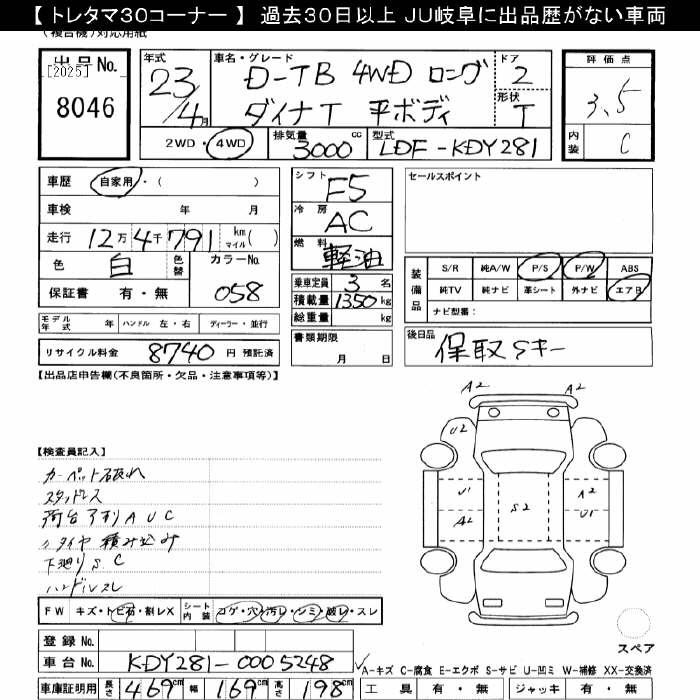 【 トレタマ30コーナー 】 過去30日以上 JU岐阜に出品歴がない車両
(複合機)対応用紙
出品 No. 8046
[2025]
年式 23/4月
車名・グレード D-TB 4WD ロング
ダイナT 平ボディ
ドア 2
形状 T
評価点 3.5
内装 C
2WD・4WD
排気量 3000 cc
型式 LDF-KDY281
車歴 自家用・( )
車検 年 月
走行 12万4千791 km マイル( )
色 白 色替
カラーNo. 058
保証書 有・無
シフト F5
冷房 AC
燃料 軽油
乗車定員 3名
積載量 1350kg
総重量 kg
書類期限 月 日
セールスポイント
装備品
S/R 純A/W P/S P/W ABS
純TV 純ナビ 革シート 外ナビ エアB
ナビ型番:
モデル年式 年 ハンドル 左・右 ディーラー・並行
リサイクル料金 8740 円 預託済
後日品 保取Sキー
【出品店申告欄(不良箇所・欠品・注意事項等)】
【検査員記入】
カーペット破れ
スタッドレス
荷台アオリ A U C
〃 タイヤ積み込み
下廻り S C
ハンドルスレ
A2 A2
U2
U1 A2
S2
A2 U1
スペア
FW キズ・トビ石・割レX シート内装 コゲ・穴・汚レ・シミ・破レ・スレ
登録 No.
車台 No. KDY281-0005248
A-キズ C-腐食 E-エクボ S-サビ U-凹ミ W-補修 XX-交換済
車庫証明用 長さ 469cm 幅 169cm 高さ 198cm
工具 有・無 ジャッキ 有・無